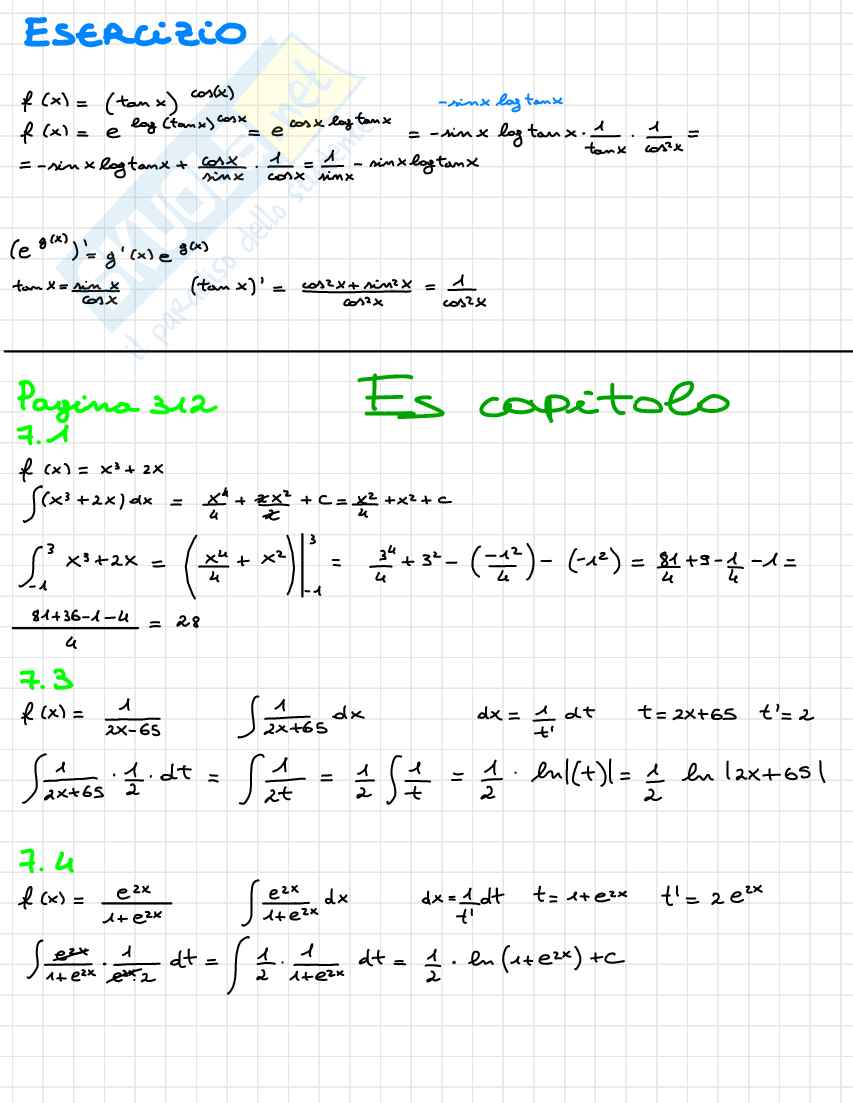 ESERCIZIO
f(x) = (tan x)^cos(x)
-sinx log tanx
f(x) = e^log(tanx)^cosx = e^cosx log tanx = -sin x log tan x · 1/tanx · 1/cos²x =
= -sin x log tanx + cosx/sinx · 1/cosx = 1/sinx - sinx log tanx
(e^g(x))' = g'(x) e^g(x)
tan x = sin x/cosx (tan x)' = cos²x + sin²x/cos²x = 1/cos²x
SKUOLA.net
il paradiso dello studente
Pagina 312 Es capitolo
7.1
f(x) = x³ + 2x
∫(x³ + 2x) dx = x⁴/4 + 2x²/2 + c = x²/4 + x² + c
∫₋₁³ x³ + 2x = (x⁴/4 + x²)|₋₁³ = 3⁴/4 + 3² - (-1²/4) - (-1²) = 81/4 + 9 - 1/4 - 1 =
81+36-1-4/4 = 28
7.3
f(x) = 1/2x-65 ∫ 1/2x+65 dx dx = 1/t' dt t = 2x+65 t' = 2
∫ 1/2x+65 · 1/2 · dt = ∫ 1/2t = 1/2 ∫ 1/t = 1/2 · ln|(t)| = 1/2 ln |2x+65|
7.4
f(x) = e^2x/1+e^2x ∫ e^2x/1+e^2x dx dx = 1/t' dt t = 1+e^2x t' = 2 e^2x
∫ e^2x/1+e^2x · 1/e^2x·2 dt = ∫ 1/2 · 1/1+e^2x dt = 1/2 · ln (1+e^2x) + C